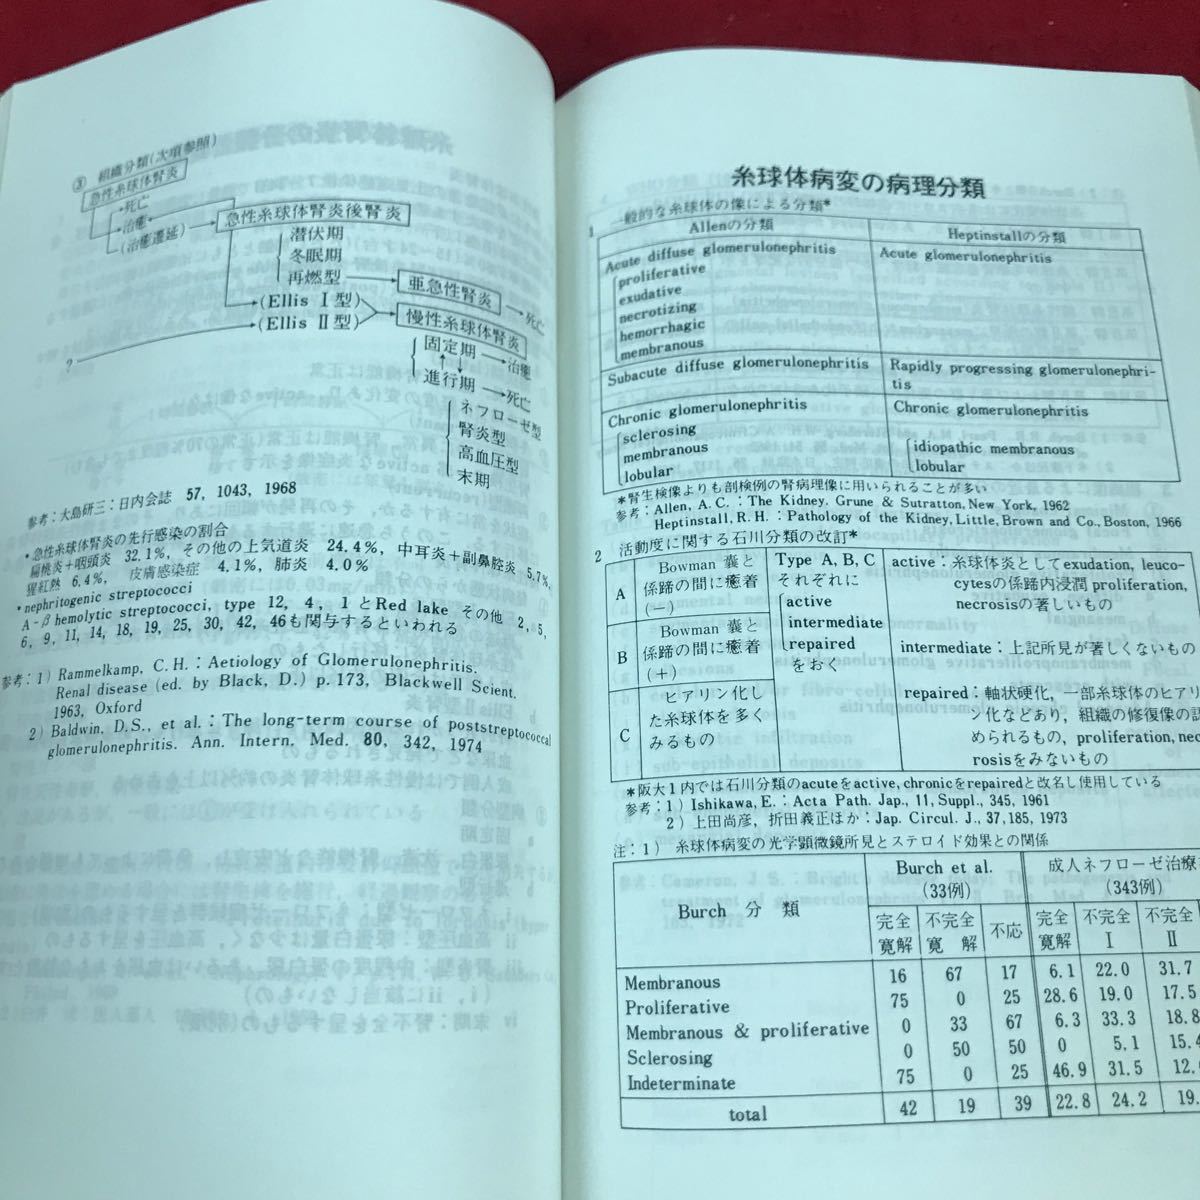 ③ 組織分類(次項参照)
急性糸球体腎炎
死亡
治癒
(治癒遷延)
急性糸球体腎炎後腎炎
潜伏期
冬眠期
再燃型
亜急性腎炎
死亡
(Ellis I型)
(Ellis II型)
慢性糸球体腎炎
?
固定期
治癒
進行期
死亡
ネフローゼ型
腎炎型
高血圧型
末期
参考:大島研三:日内会誌 57, 1043, 1968
・急性糸球体腎炎の先行感染の割合
扁桃炎+咽頭炎 32.1%, その他の上気道炎 24.4%, 中耳炎+副鼻腔炎 5.7%,
猩紅熱 6.4%, 皮膚感染症 4.1%, 肺炎 4.0%
・nephritogenic streptococci
A-β hemolytic streptococci, type 12, 4, 1とRed lake その他 2, 5,
6, 9, 11, 14, 18, 19, 25, 30, 42, 46も関与するといわれる
参考:1) Rammelkamp, C.H.: Aetiology of Glomerulonephritis.
Renal disease (ed. by Black, D.) p.173, Blackwell Scient.
1963, Oxford
2) Baldwin, D.S., et al.: The long-term course of poststreptococcal
glomerulonephritis. Ann. Intern. Med. 80, 342, 1974
糸球体病変の病理分類
1 一般的な糸球体の像による分類*
Allenの分類 Heptinstallの分類
Acute diffuse glomerulonephritis Acute glomerulonephritis
proliferative
exudative
necrotizing
hemorrhagic
membranous
Subacute diffuse glomerulonephritis Rapidly progressing glomerulonephri-
tis
Chronic glomerulonephritis Chronic glomerulonephritis
sclerosing
membranous idiopathic membranous
lobular lobular
*腎生検像よりも剖検例の腎病理像に用いられることが多い
参考:Allen, A.C.: The Kidney, Grune & Sutratton, New York, 1962
Heptinstall, R.H.: Pathology of the Kidney, Little, Brown and Co., Boston, 1966
2 活動度に関する石川分類の改訂*
A Bowman 嚢と
係蹄の間に癒着
(−)
B Bowman 嚢と
係蹄の間に癒着
(+)
C ヒアリン化し
た糸球体を多く
みるもの
Type A, B, C
それぞれに
active
intermediate
repaired
をおく
active:糸球体炎としてexudation, leuco-
cytesの係蹄内浸潤 proliferation,
necrosisの著しいもの
intermediate:上記所見が著しくないもの
repaired:軸状硬化, 一部糸球体のヒアリ
ン化などあり, 組織の修復像の認
められるもの, proliferation, nec
rosisをみないもの
*阪大1内では石川分類のacuteをactive, chronicをrepairedと改名し使用している
参考:1) Ishikawa, E.: Acta Path. Jap., 11, Suppl., 345, 1961
2) 上田尚彦, 折田義正ほか: Jap. Circul. J., 37, 185, 1973
注:1) 糸球体病変の光学顕微鏡所見とステロイド効果との関係
Burch 分類 Burch et al. (33例) 成人ネフローゼ治療 (343例)
完全寛解 不完全寛解 不応 完全寛解 不完全I 不完全II
Membranous 16 67 17 6.1 22.0 31.7
Proliferative 75 0 25 28.6 19.0 17.5
Membranous & proliferative 0 33 67 6.3 33.3 18.8
Sclerosing 0 50 50 0 5.1 15.4
Indeterminate 75 0 25 46.9 31.5 12.
total 42 19 39 22.8 24.2 19.